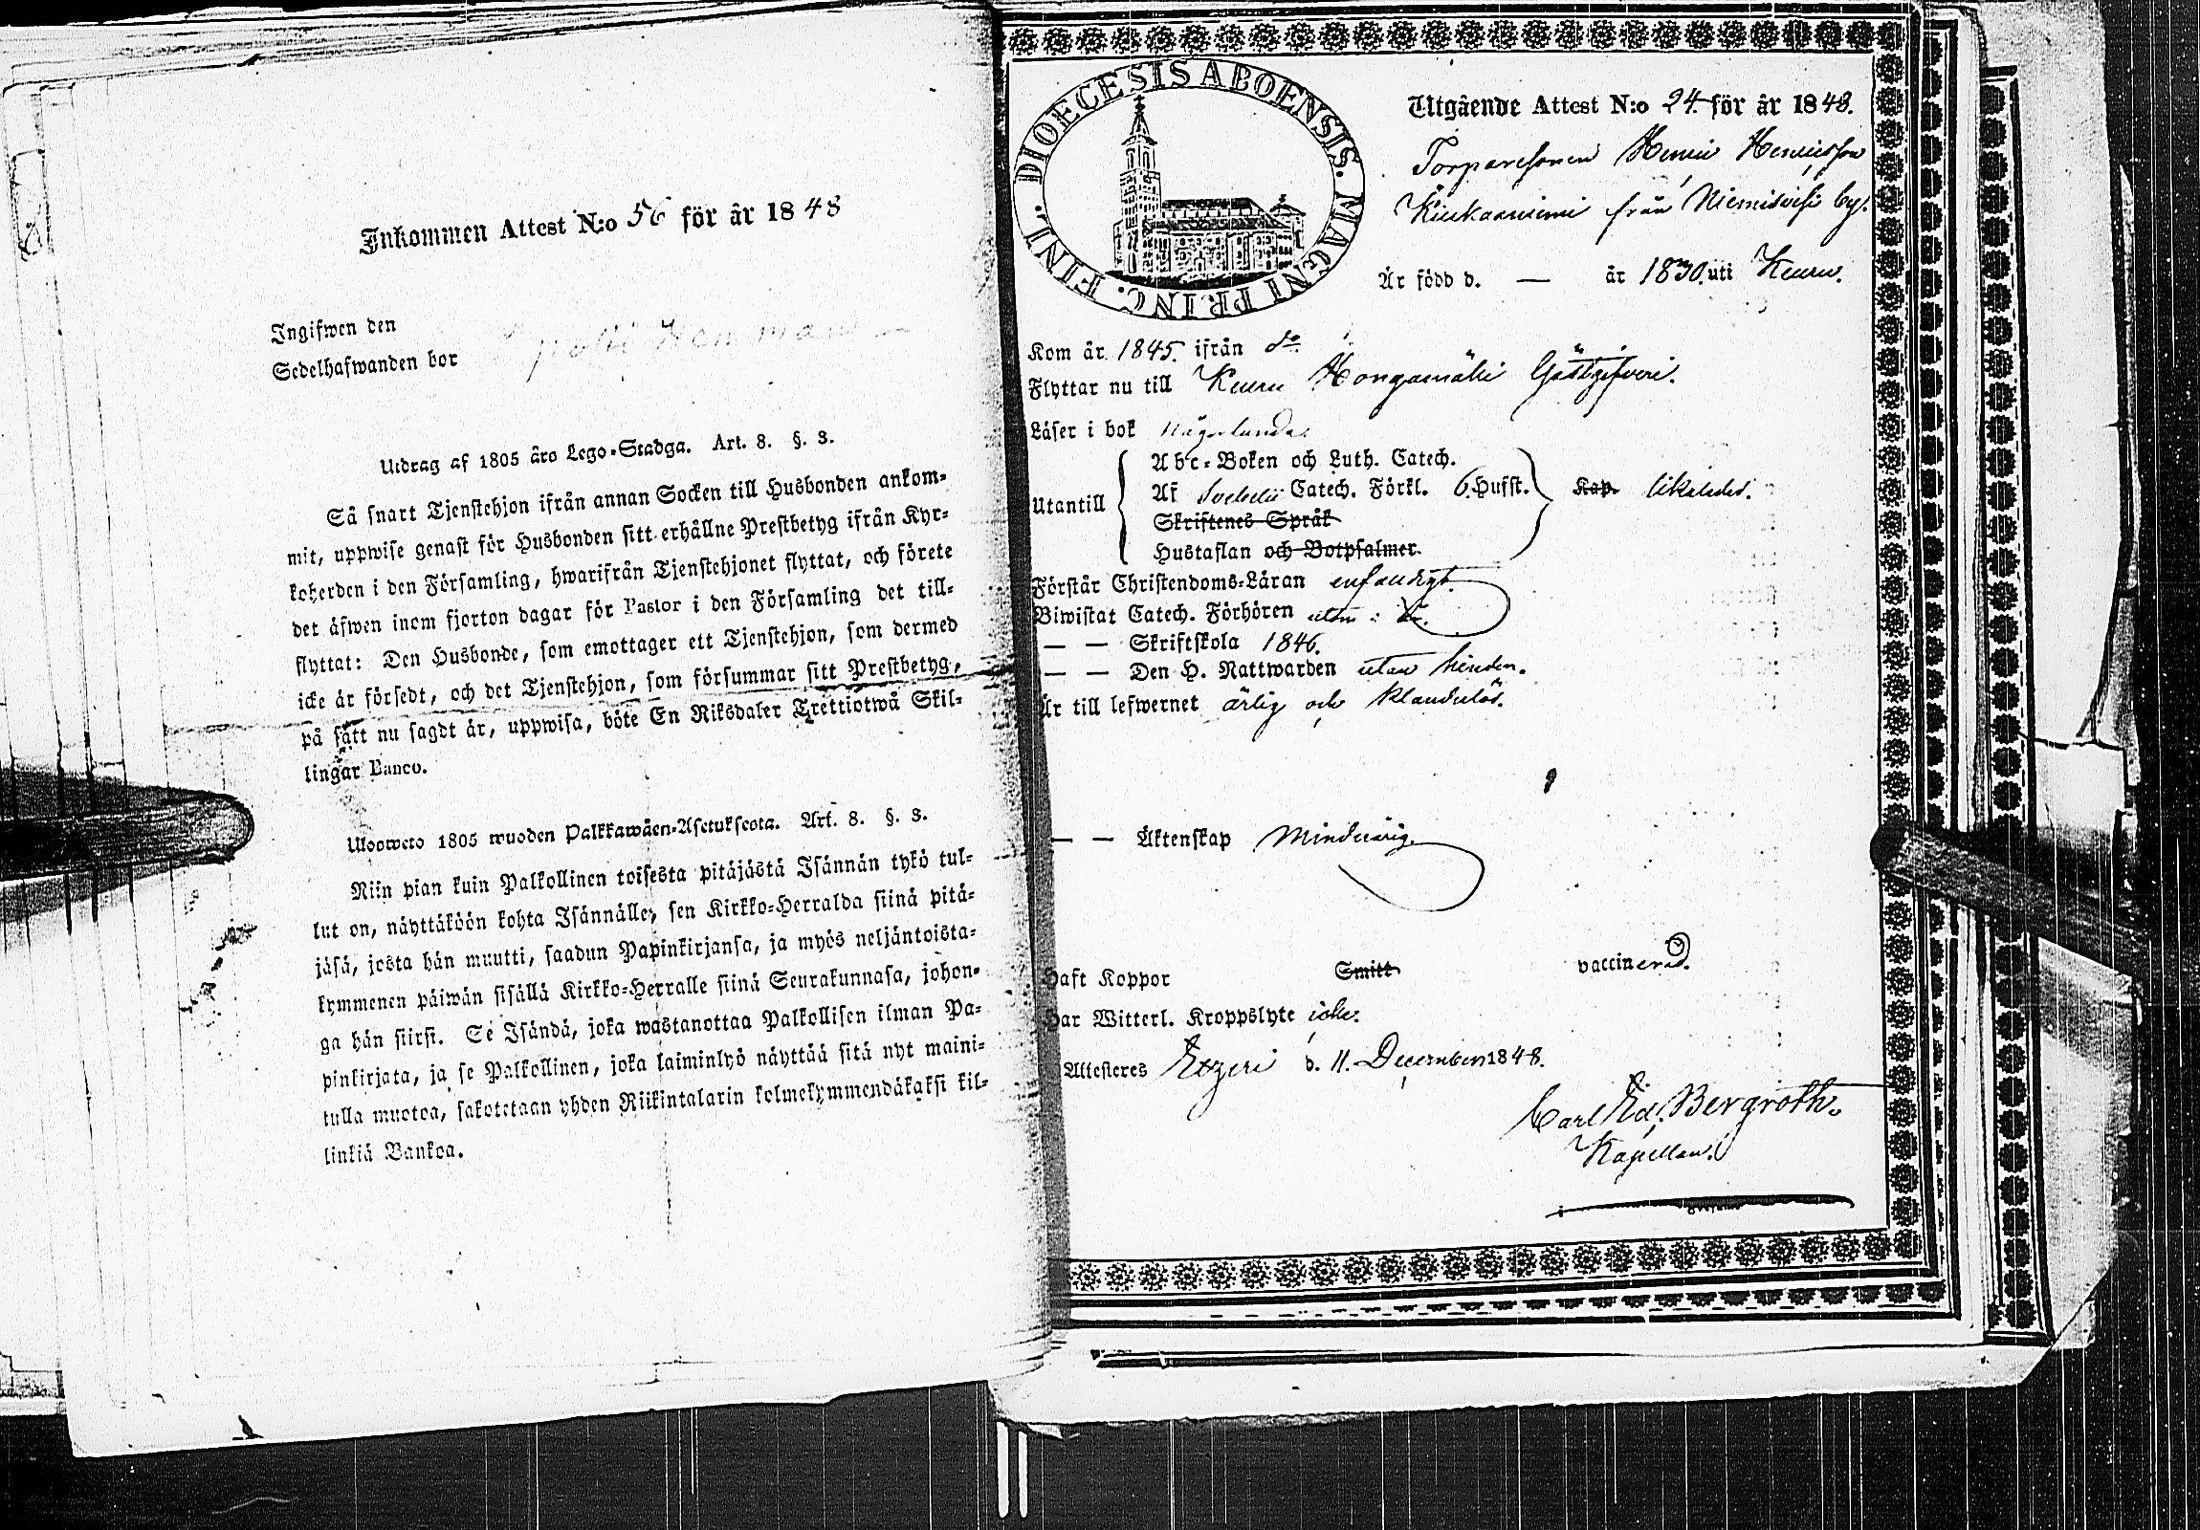 Inkommen Attest N:o 56 för år 1848
Ingifwen den
Sedelhafwanden bor
Utdrag af 1805 års Lego-Stadga. Art. 8. §. 3.
Så snart Tjenstehjon ifrån annan Socken till Husbonden ankom-
mit, uppwise genast för Husbonden sitt erhållne Prestbetyg ifrån Kyr-
koherden i den Församling, hwarifrån Tjenstehjonet flyttat, och förete
det äfwen inom fjorton dagar för Pastor i den Församling det till-
flyttat: Den Husbonde, som emottager ett Tjenstehjon, som dermed
icke är försedt, och det Tjenstehjon, som försummar sitt Prestbetyg,
på sätt nu sagdt är, uppwisa, böte En Riksdaler Trettiotwå Skil-
lingar Banco.
Uloosweto 1805 wuoden Palkkawäen-Asetuksesta. Art. 8. §. 3.
Niin pian kuin Palkollinen toisesta pitäjästä Isännän tykö tul-
lut on, näyttäköön kohta Isännälle, sen Kirkko-Herralda siinä pitä-
jäsä, josta hän muutti, saadun Papinkirjansa, ja myös neljäntoista-
kymmenen päiwän sisällä Kirkko-Herralle siinä Seurakunnasa, johon-
ga hän siirsi. Se Isändä, joka wastanottaa Palkollisen ilman Pa-
pinkirjata, ja se Palkollinen, joka laiminlyö näyttää sitä nyt maini-
tulla muotoa, sakotetaan yhden Riikintalarin kolmekymmendäkaksi kil-
linkiä Bankoa.
DIOECESIS ABOENSIS. MAGNI PRINC. FINL.
Utgående Attest N:o 24 för år 1848.
Torparesonen Henric Henricsson
Kiukaanniemi från Niemisvesi by.
Är född d. — år 1830. uti Keuru.
Kom år 1845. ifrån do
Flyttar nu till Keuru Hongamäki Gästgifveri.
Läser i bok någorlunda.
Utantill
Abc-Boken och Luth. Catech.
Af Svebelii Catech. Förkl. 6. Hufst. Kap. likaledes.
Skriftenes Språk
Hustaflan och Botpsalmer.
Förstår Christendoms-Läran enfaldigt.
Biwistat Catech. Förhören
— — Skriftskola 1846.
— — Den H. Nattwarden utan hinder.
Är till lefwernet ärlig och klanderlös.
— — Äktenskap Minderårig.
Haft Koppor Smitt vaccinerad.
Har Witterl. Kroppslyte icke.
Attesteres Etzeri d. 11. December 1848.
Carl Ed. Bergroth.
Kapellan.